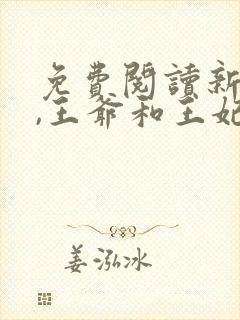 免費閱讀新
,王爺和王妃
姜泓冰